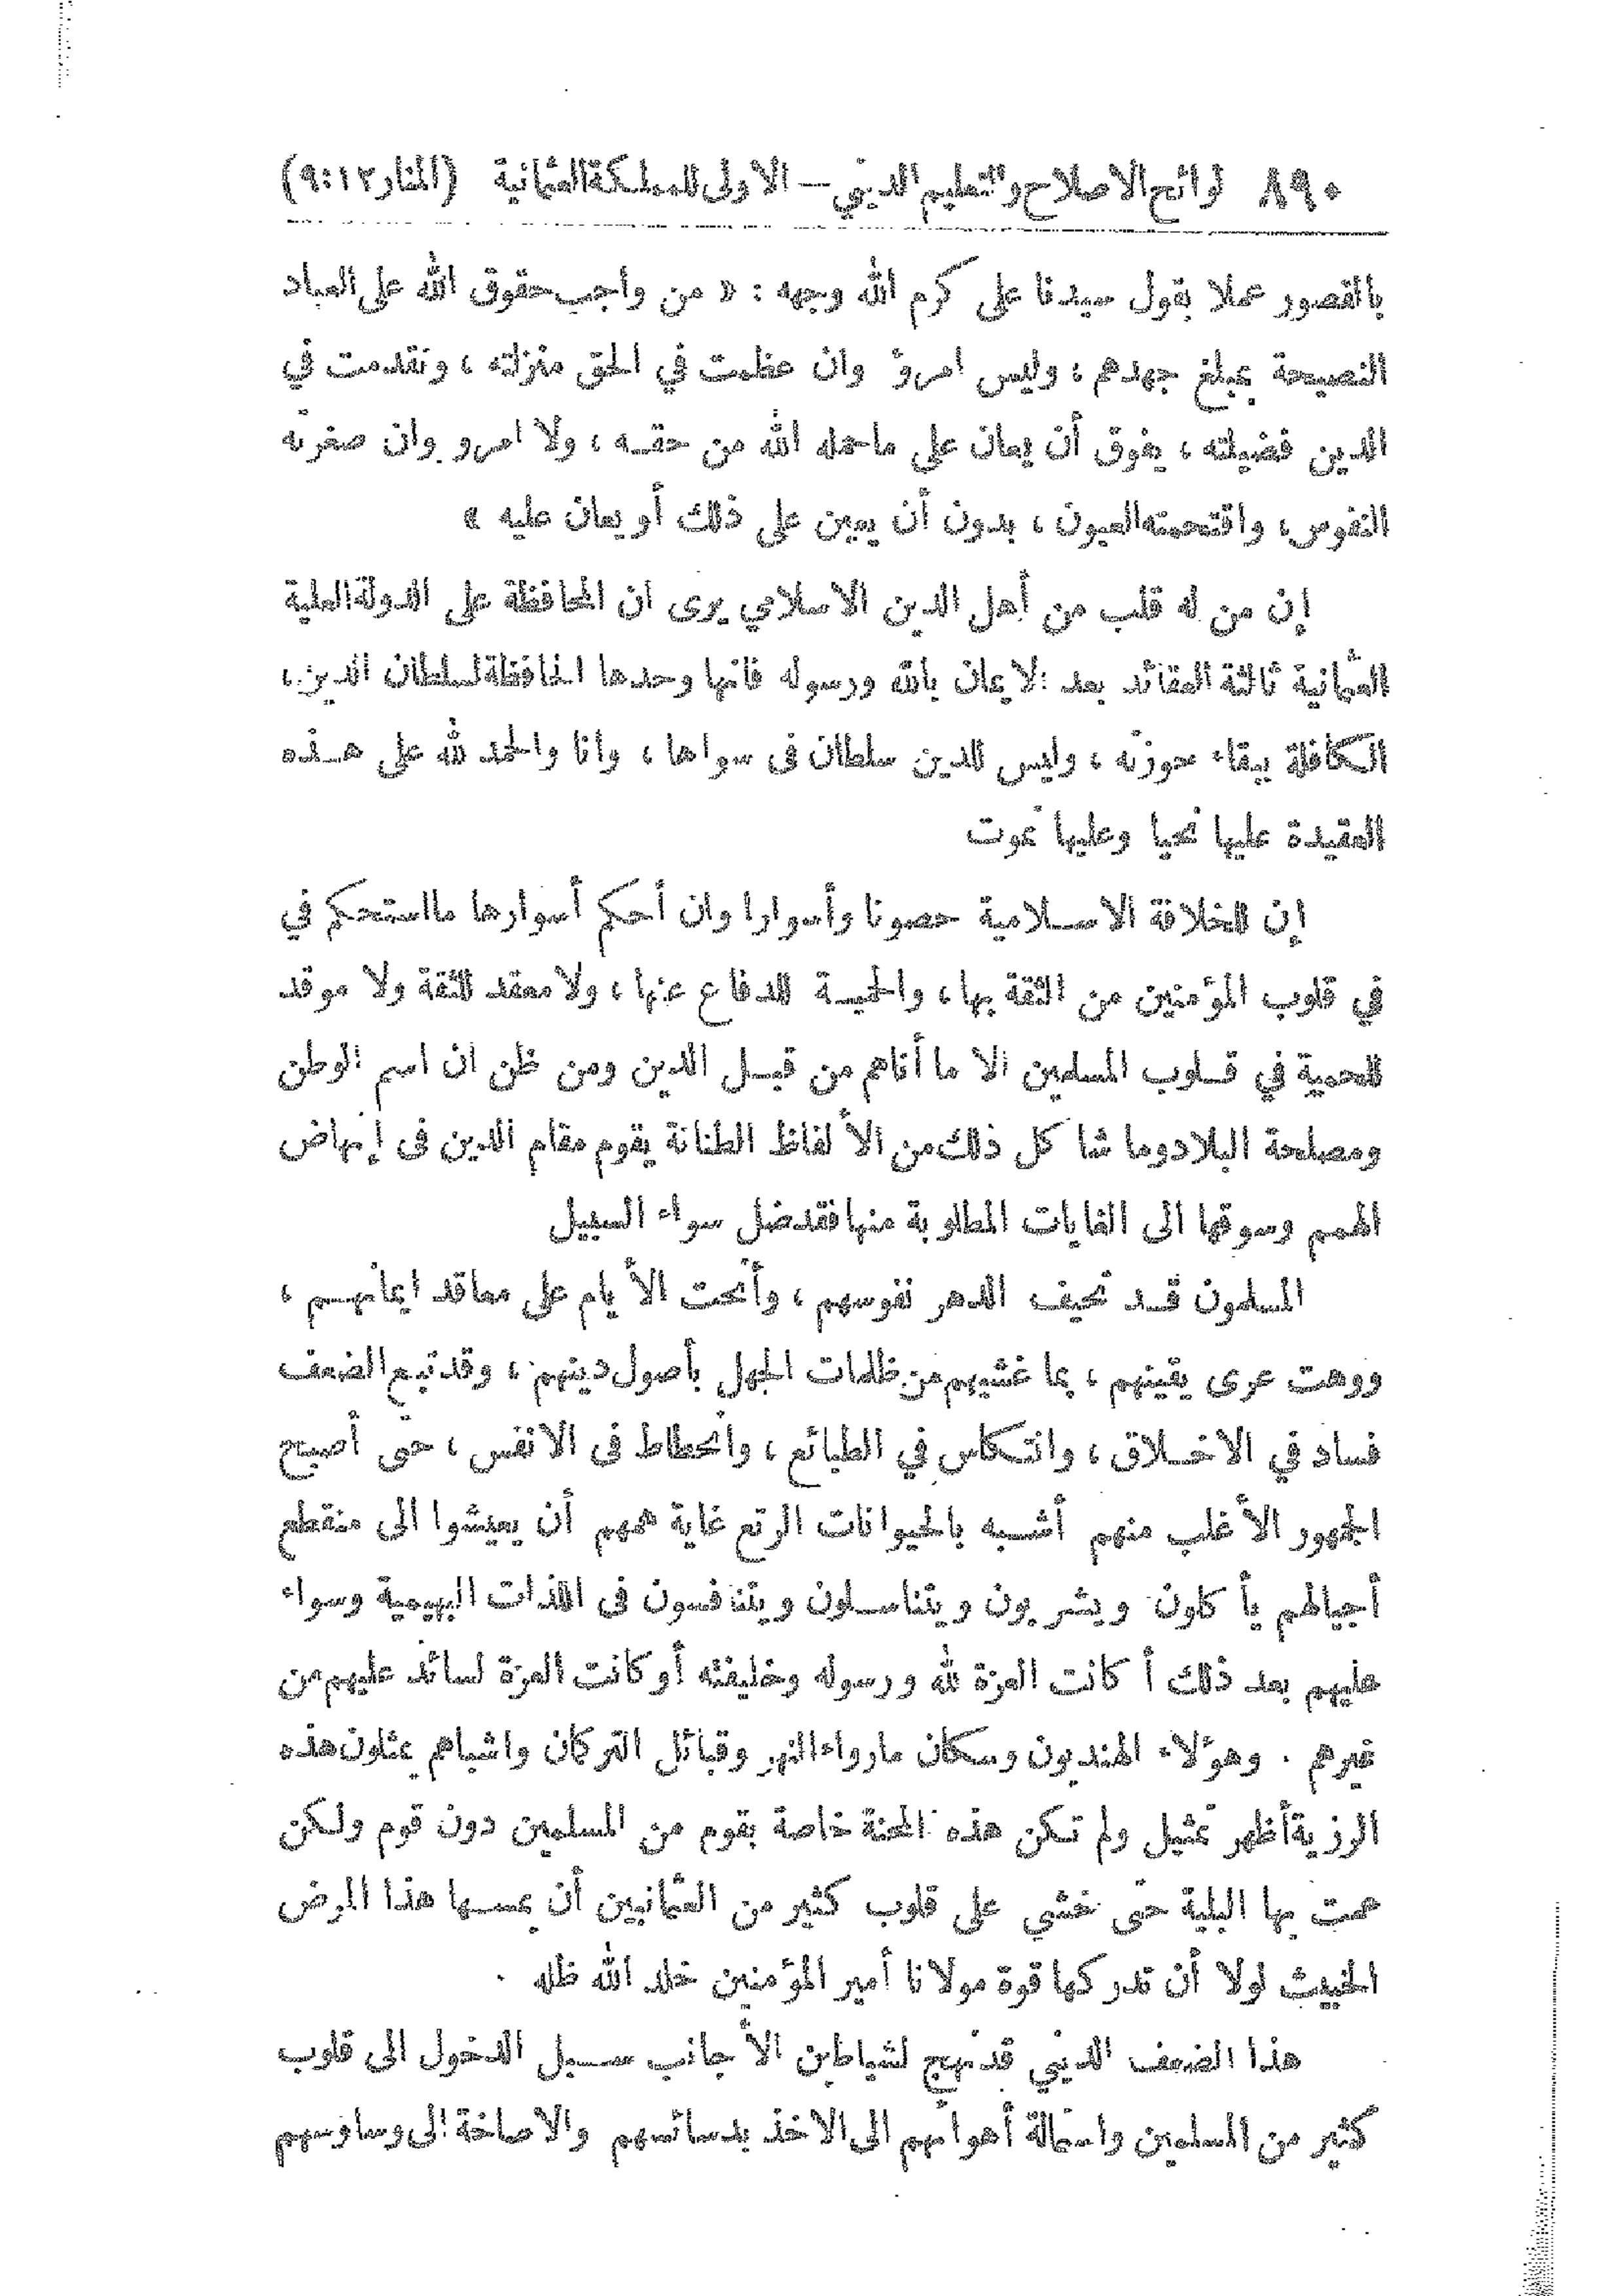 ٨٩٠ لوائح الاصلاح والتعليم الديني — الاولى للمملكة العثمانية (المنار ٩:١٢)
بالقصور عملا بقول سيدنا على كرم الله وجهه : « من واجب حقوق الله على العباد
النصيحة بمبلغ جهدهم ، وليس امرؤ وان عظمت في الحق منزلته ، وتقدمت في
الدين فضيلته ، يفوق أن يعان على ماحمله الله من حقه ، ولا امرو وان صغرته
النفوس ، واقتحمته العيون ، بدون أن يعين على ذلك أو يعان عليه »
إن من له قلب من أهل الدين الاسلامي يرى ان المحافظة على الدولة العلية
العثمانية ثالثة العقائد بعد الايمان بالله ورسوله فانها وحدها الحافظة لسلطان الدين ،
الكافلة ببقاء حوزته ، وليس للدين سلطان فى سواها ، وانا والحمد لله على هذه
العقيدة عليها نحيا وعليها نموت
إن للخلافة الاسلامية حصونا وأسوارا وان أحكم أسوارها مااستحكم في
في قلوب المؤمنين من الثقة بها ، والحمية للدفاع عنها ، ولا معقد للثقة ولا موقد
للحمية في قلوب المسلمين الا ما أتاهم من قبل الدين ومن ظن ان اسم الوطن
ومصلحة البلاد وما شا كل ذلك من الألفاظ الطنانة يقوم مقام الدين فى إنهاض
الهمم وسوقها الى الغايات المطلوبة منها فقد ضل سواء السبيل
المسلمون قد تحيف الدهر نفوسهم ، وأنحت الأيام على معاقد ايمانهم ،
ووهت عرى يقينهم ، بما غشيهم من ظلمات الجهل بأصول دينهم ، وقد تبع الضعف
فساد في الاخلاق ، وانتكاس في الطبائع ، وانحطاط فى الانفس ، حتى أصبح
الجمهور الأغلب منهم أشبه بالحيوانات الرتع غاية همهم أن يعيشوا الى منقطع
أجيالهم يأ كلون ويشربون ويتناسلون ويتنافسون فى اللذات البهيمية وسواء
عليهم بعد ذلك أ كانت العزة لله ورسوله وخليفته أو كانت العزة لسائد عليهم من
غيرهم . وهؤلاء الهنديون وسكان مارواء النهر وقبائل التركمان واشباههم يمثلون هذه
الرزية أظهر تمثيل ولم تكن هذه المحنة خاصة بقوم من المسلمين دون قوم ولكن
عمت بها البلية حتى خشي على قلوب كثير من العثمانيين أن يمسها هذا المرض
الخبيث لولا أن تدركها قوة مولانا أمير المؤمنين خلد الله ظله .
هذا الضعف الديني قد نهج لشياطين الأجانب سبل الدخول الى قلوب
كثير من المسلمين واستمالة أهوائهم الى الاخذ بدسائسهم والاصاخة الى وساوسهم